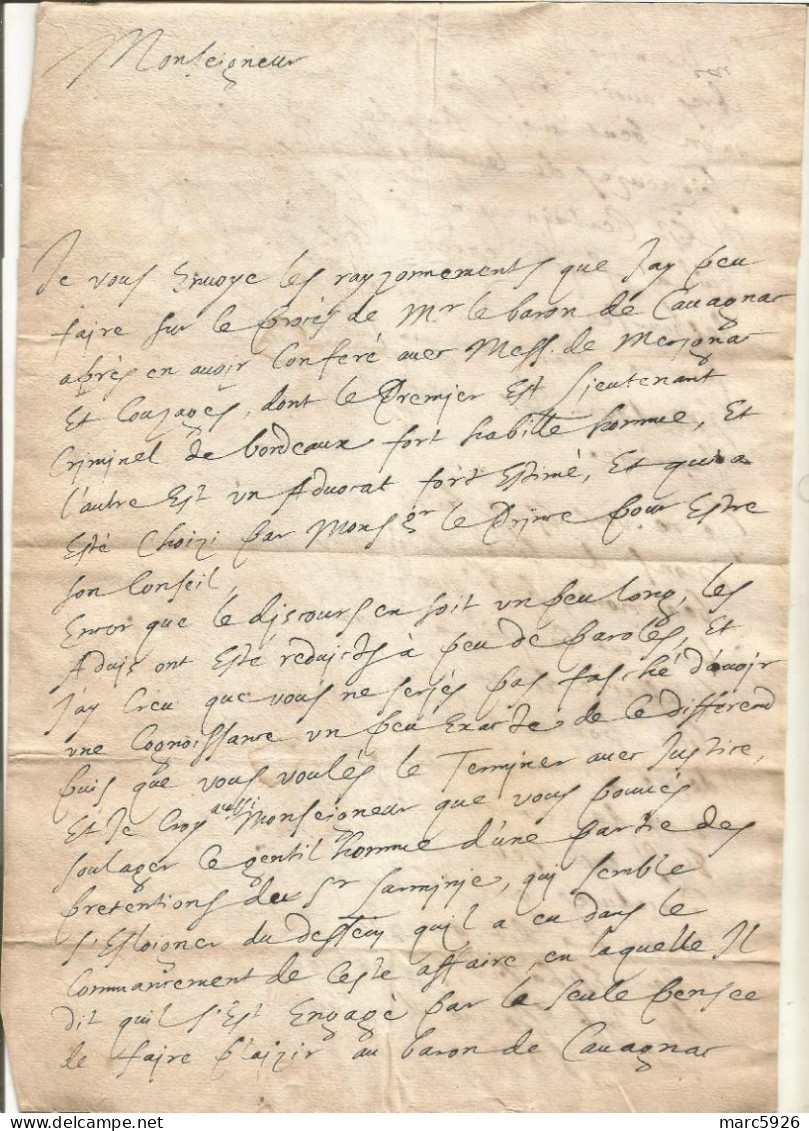 Monseigneur
Je vous envoye les rayzonnements que Jay peu
faire sur le procés de Mr le baron de Cauagnac
aprés en auoir conferé auec Mess. de
Et Couzages, dont le Premier Est Lieutenant
Criminel de bordeaux fort habille homme, Et
l'autre Est un Aduocat fort Estimé, Et qui a
Esté Choizi par Monsgr le Prince pour Estre
son Conseil,
Encor que le discours en soit un peu long, les
Aduis ont Esté reduicts à peu de paroles, Et
J'ay Creu que vous ne seriés pas fasché d'auoir
une Cognoissance un peu Exacte de Ce differend
puis que vous voulés le Terminer auec Justice,
Et Je Croy aussi Monseigneur que vous pouués
soulager Ce gentil homme d'une partie des
pretentions du Sr , qui semble
s'Esloigner du dessein qu'il a eu dans le
Commancement de Ceste affaire, en laquelle Il
dit qu'il s'Est Engagé par la seule pensée
de faire plaizir au baron de Cauagnac
marc5926